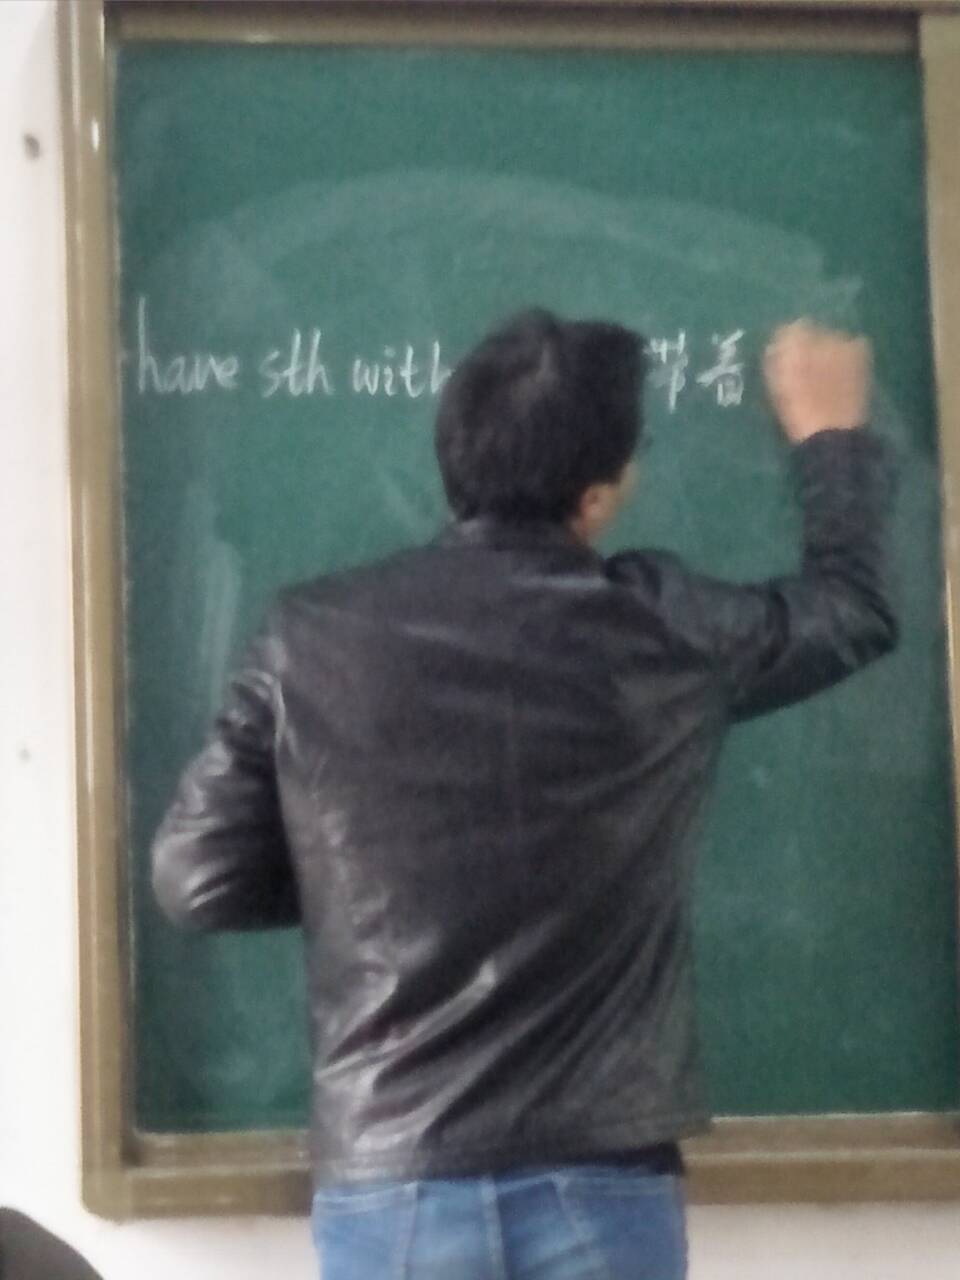 have sth with 带着